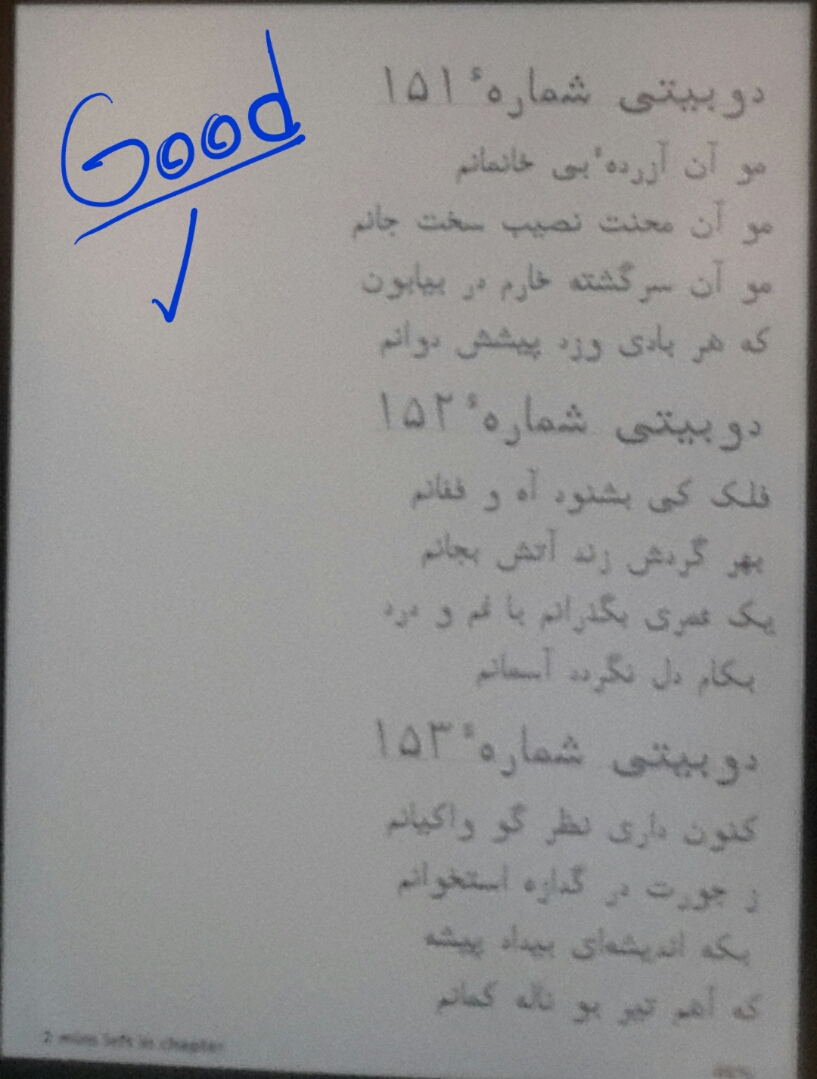 Good
دوبیتی شمارهٔ ۱۵۱
مو آن آزردهٔ بی خانمانم
مو آن محنت نصیب سخت جانم
مو آن سرگشته خارم در بیابون
که هر بادی وزد پیشش دوانم
دوبیتی شمارهٔ ۱۵۲
فلک کی بشنود آه و فغانم
بهر گردش زند آتش بجانم
یک عمری بگذرانم با غم و درد
بکام دل نگردد آسمانم
دوبیتی شمارهٔ ۱۵۳
کنون داری نظر گو واکیانم
ز جورت در گدازه استخوانم
بکه اندیشه‌ای بیداد پیشه
که آهم تیر بو ناله کمانم
2 mins left in chapter